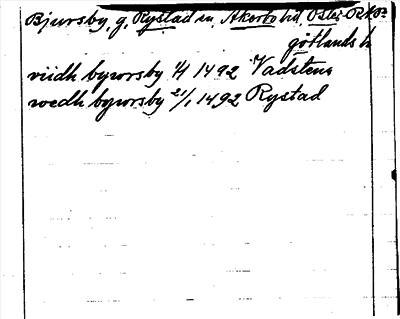 Bjursby, g. Rystad sn, Åkerbo hd, Öster-
götlands l.
viidh byursby 1/1 1492 Vadstena
wedh byursby 21/1 1492 Rystad